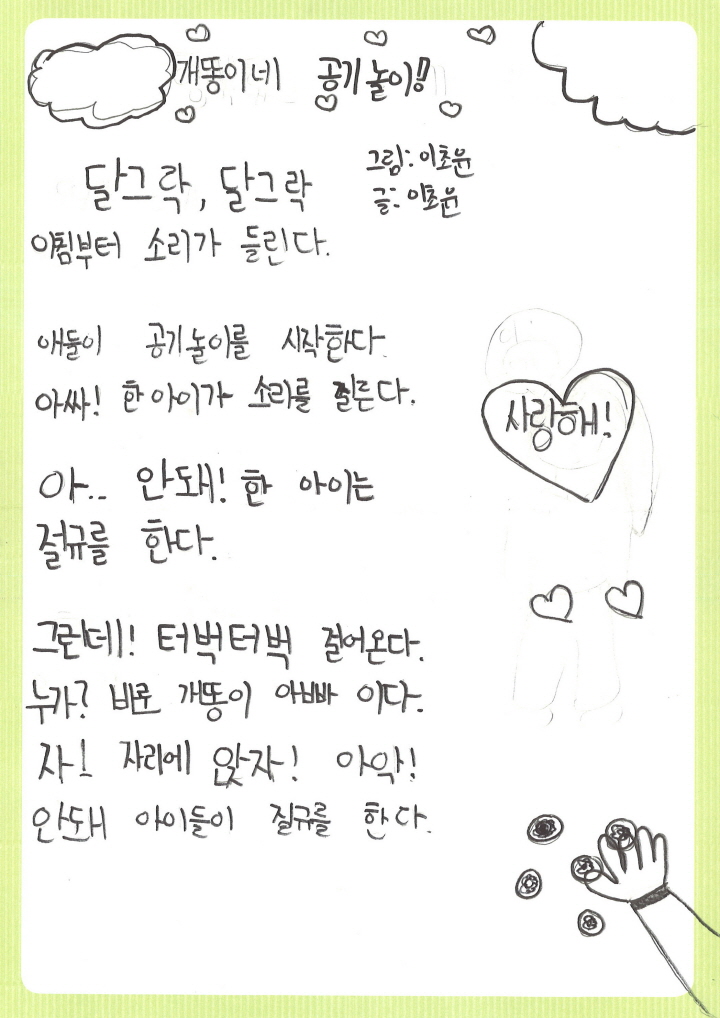 개똥이네 공기놀이!!
그림: 이초윤
글: 이초윤
달그락, 달그락
아침부터 소리가 들린다.
애들이 공기놀이를 시작한다.
아싸! 한 아이가 소리를 질른다.
사랑해!
아.. 안돼! 한 아이는
절규를 한다.
그런데! 터벅터벅 걸어온다.
누가? 바로 개똥이 아빠 이다.
자! 자리에 앉자! 아악!
안돼 아이들이 질규를 한다.